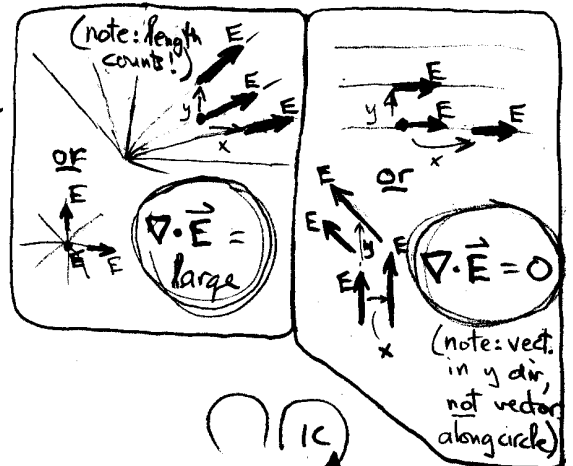 (note: length
counts!)
E
E
E
y
x
or
E
E
E
∇·E⃗ =
large
E
y
E
E
x
or
E
E
y
E
E
x
∇·E⃗ = 0
(note: vect.
in y dir,
not vector
along circle)
1C